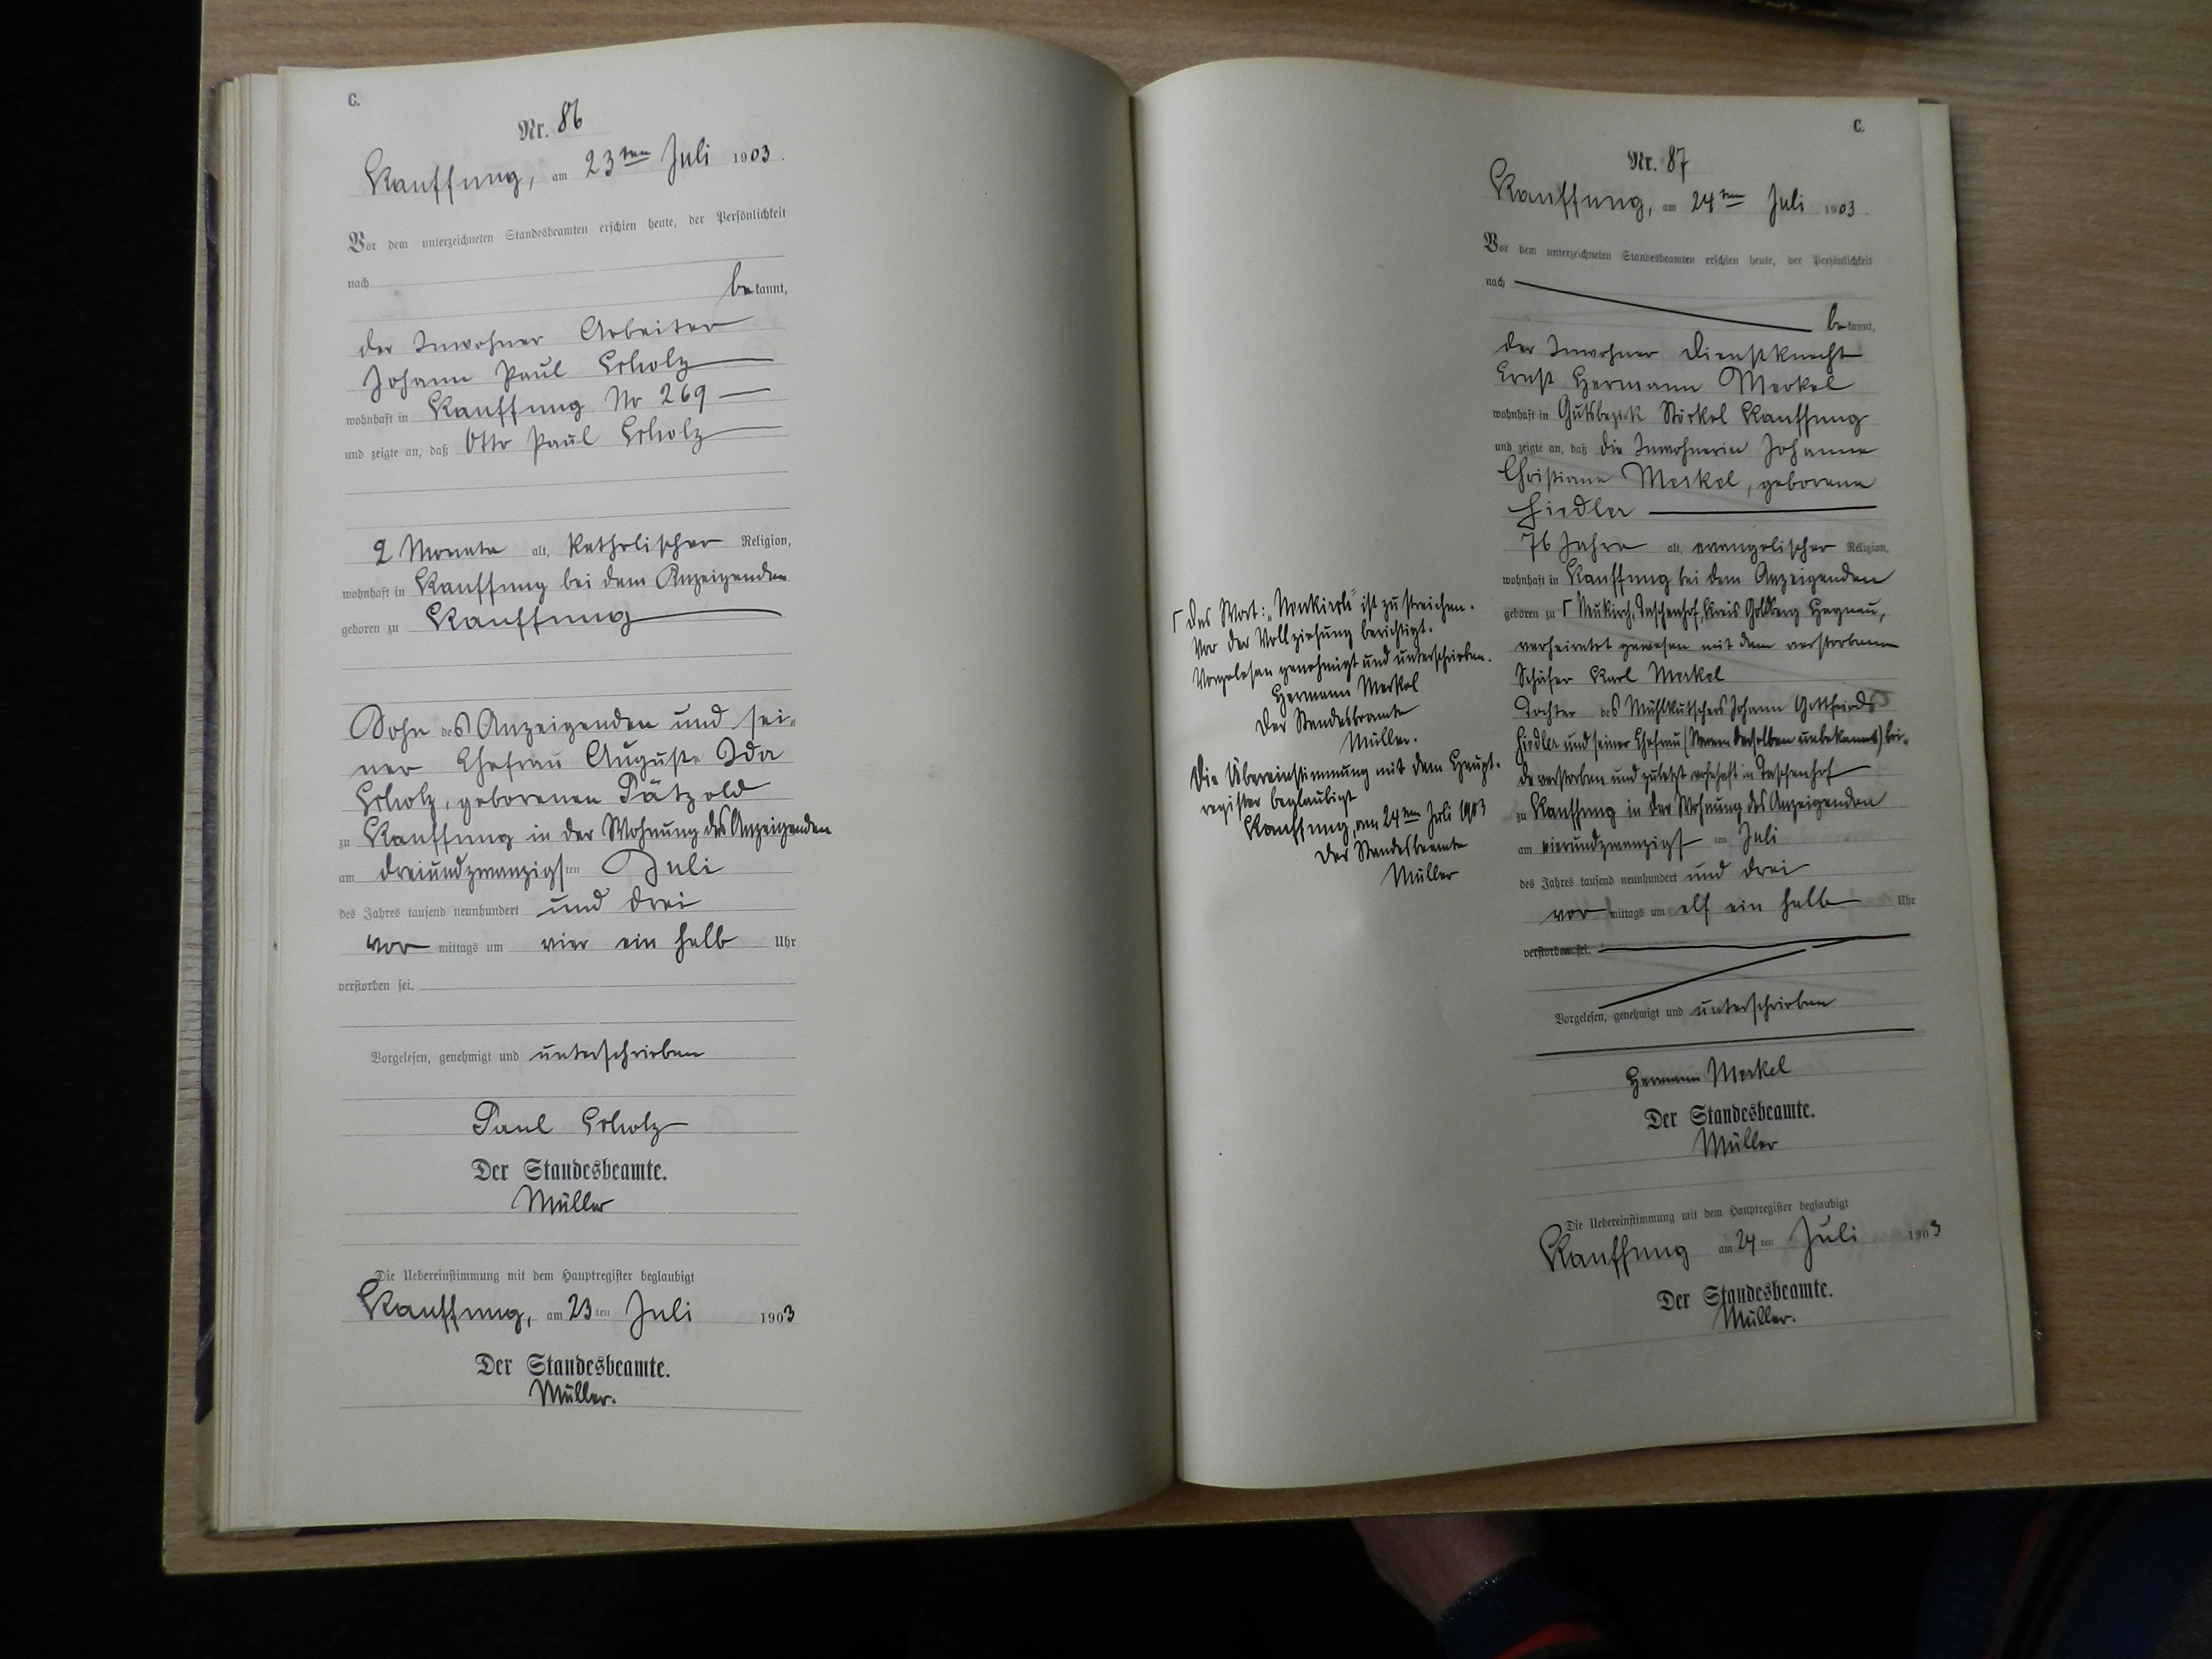 C.
Nr. 86
Kauffung, am 23ten Juli 1903.
Vor dem unterzeichneten Standesbeamten erschien heute, der Persönlichkeit
nach
bekannt,
der Inwohner Arbeiter
Johann Paul
wohnhaft in Kauffung No 269
und zeigte an, daß Otto Paul
2 Monate alt, katholischer Religion,
wohnhaft in Kauffung bei dem Anzeigenden
geboren zu Kauffung
Sohn des Anzeigenden und sei-
ner Ehefrau Auguste Ida
geborenen Pätzold
zu Kauffung in der Wohnung des Anzeigenden
am dreiundzwanzigsten Juli
des Jahres tausend neunhundert und drei
vor mittags um vier ein halb Uhr
verstorben sei.
Vorgelesen, genehmigt und unterschrieben
Paul
Der Standesbeamte.
Müller
Die Uebereinstimmung mit dem Hauptregister beglaubigt
Kauffung, am 23ten Juli 1903
Der Standesbeamte.
Müller.
C.
Nr. 87
Kauffung, am 24ten Juli 1903
Vor dem unterzeichneten Standesbeamten erschien heute, der Persönlichkeit
nach
bekannt,
der Inwohner Dienstknecht
Ernst Hermann Merkel
wohnhaft in Gutsbezirk Stöckel Kauffung
und zeigte an, daß die Inwohnerin Johanne
Christiane Merkel, geborene
Fiedler
76 Jahre alt, evangelischer Religion,
wohnhaft in Kauffung bei dem Anzeigenden
geboren zu Γ Neukirch, Taschenhof, Kreis Goldberg Haynau,
verheiratet gewesen mit dem verstorbenen
Schäfer Karl Merkel
Tochter des Mühlkutschers Johann Gottfried
Fiedler und seiner Ehefrau (Namen derselben unbekannt) bei-
de verstorben und zuletzt wohnhaft in Taschenhof
zu Kauffung in der Wohnung des Anzeigenden
am vierundzwanzigsten Juli
des Jahres tausend neunhundert und drei
vor mittags um elf ein halb Uhr
verstorben sei.
Vorgelesen, genehmigt und unterschrieben
Hermann Merkel
Der Standesbeamte.
Müller
Die Uebereinstimmung mit dem Hauptregister beglaubigt
Kauffung am 24ten Juli 1903
Der Standesbeamte.
Müller.
Γ Das Wort: „Neukirch" ist zu streichen.
Vor der Vollziehung berichtigt.
Vorgelesen genehmigt und unterschrieben.
Hermann Merkel
Der Standesbeamte
Müller.
Die Übereinstimmung mit dem Haupt-
register beglaubigt
Kauffung, am 24ten Juli 1903
Der Standesbeamte
Müller